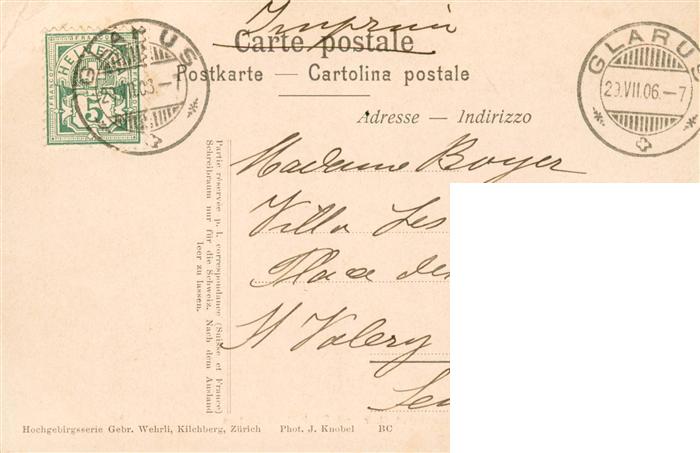 Imprimé
Carte postale
Postkarte — Cartolina postale
Adresse — Indirizzo
HELVETIA
FRANCO
FRANCO
5
GLARUS
GLARUS
29.VII.06.–7
Madame Boyer
Villa Les
Place des
St Valery
Partie réservée p. l. correspondance (Suisse et France)
Schreibraum nur für die Schweiz. Nach dem Ausland
leer zu lassen.
Hochgebirgsserie Gebr. Wehrli, Kilchberg, Zürich Phot. J. Knobel BC